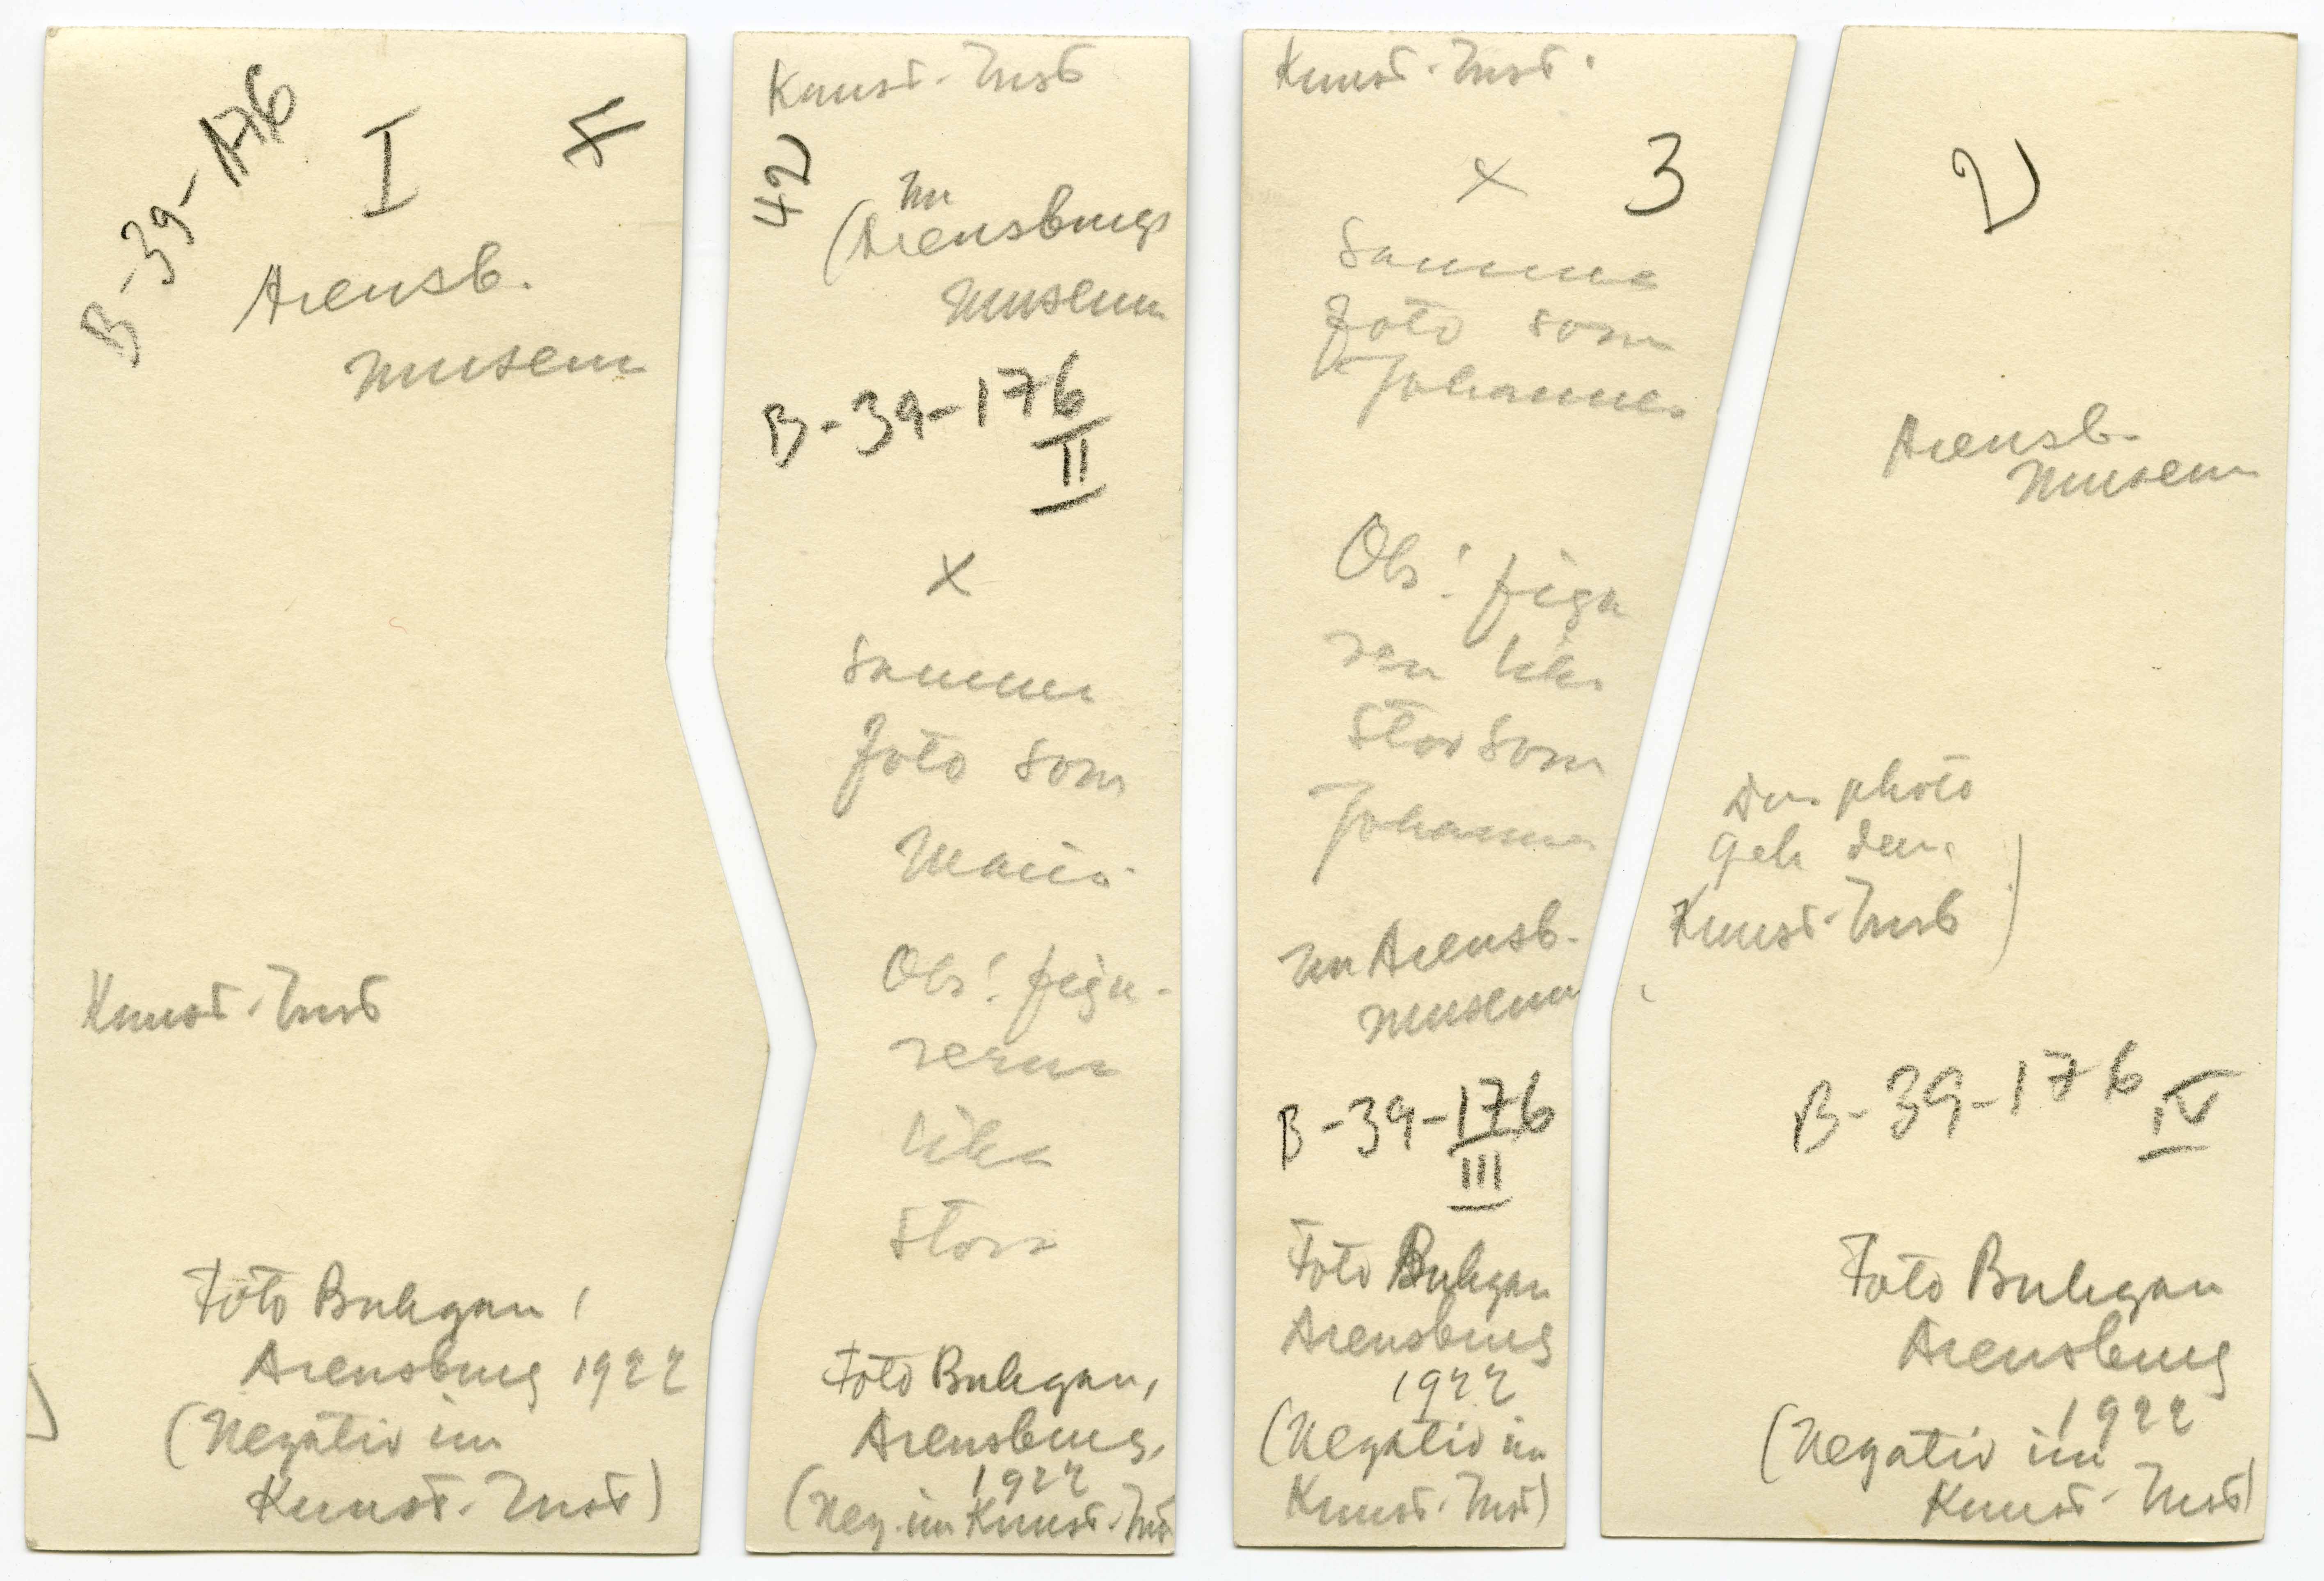 B-39-176
I
Arensb.
museum
Kunst-Inst
Foto Buhgan,
Arensburg 1922
(Negativ im
Kunst-Inst)
Kunst-Inst
42
Im
(Arensburgs
museum
B-39-176
II
x
Samma
foto som
Maria.
Obs! figu-
rerna
lika
stora
Foto Buhgan,
Arensburg,
1922
(Neg. im Kunst-Inst
Kunst-Inst.
x 3
Samma
foto som
Johannes
Obs! figu
ren lika
stor som
Johannes
Im Arensb.
museum
B-39-176
III
Foto Buhgan
Arensburg
1922
(Negativ im
Kunst-Inst)
2
Arensb.
museum
Das photo
geh. dem
Kunst-Inst)
B-39-176
IV
Foto Buhgan
Arensburg
1922
(Negativ im
Kunst-Inst)